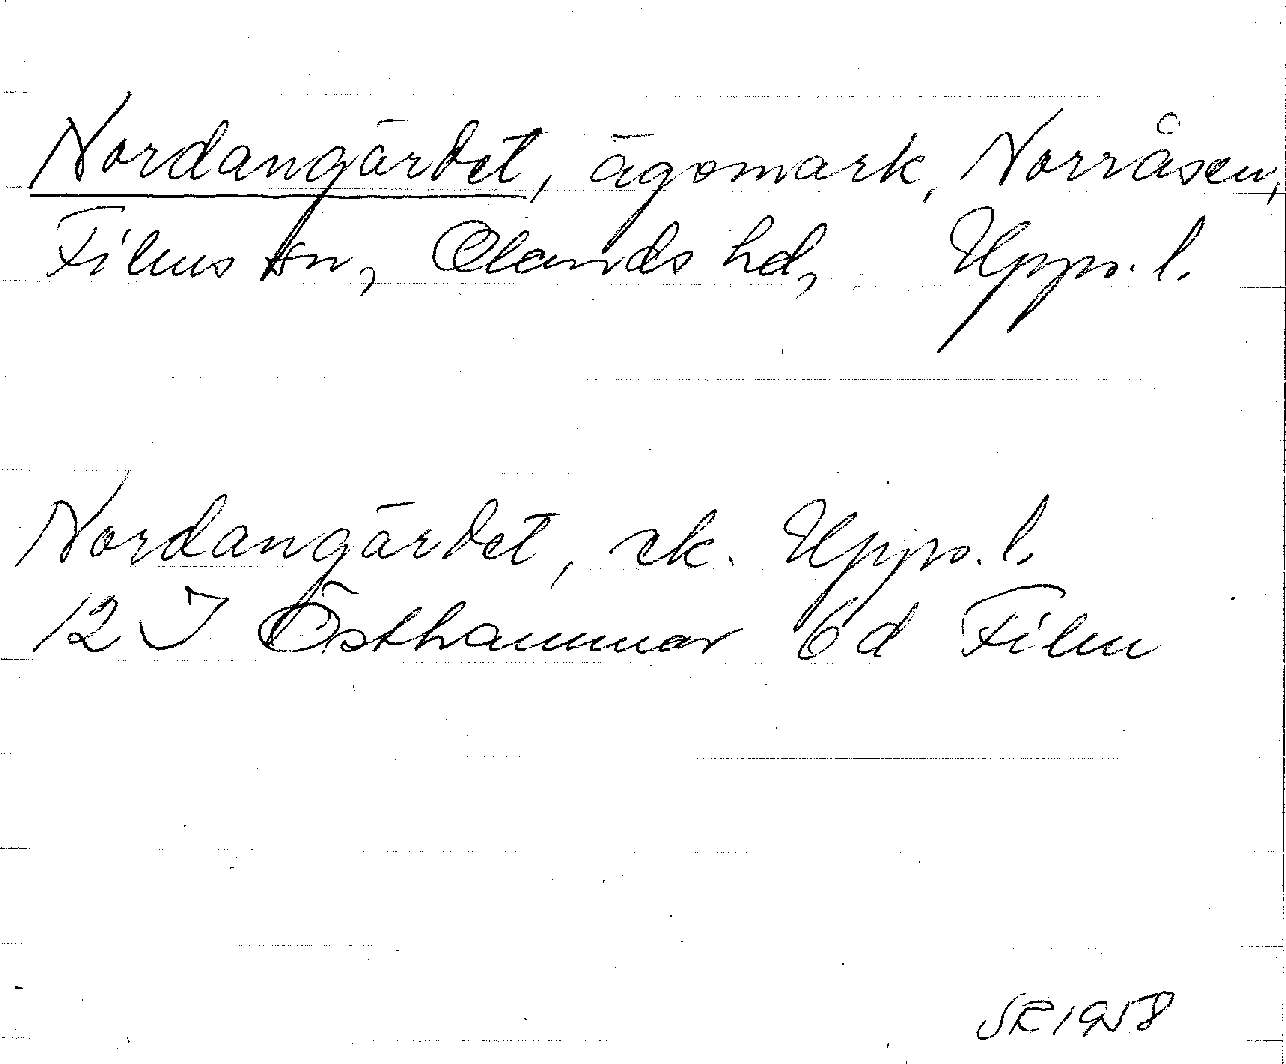 Nordangärdet, ägomark, Norråsen,
Films sn, Olands hd, Upps. l.
Nordangärdet, ek. Upps. l.
12 I Östhammar 6d Film
SR 1958